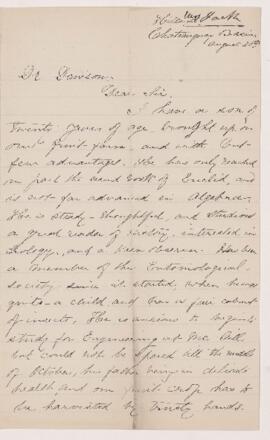 Mrs Jack
Chateauguay Basin
August 20th
Dr Dawson.
Dear Sir.
I have a son of
twenty years of age brought up on
our fruit farm, and with but
few advantages. He has only reached
in part the second book of Euclid, and
is not far advanced in Algebra.
He is steady - thoughtful, and studious
a good reader of history, interested in
Zoology, and a keen observer. Has been
a member of the Entomological
society since it started, when he was
quite a child and has a fair cabinet
of insects. He is anxious to begin
study for Engineering at McGill,
but could not be spared till the middle
of October, his father being in delicate
health and our fruit crop has to
be harvested by thirty hands.